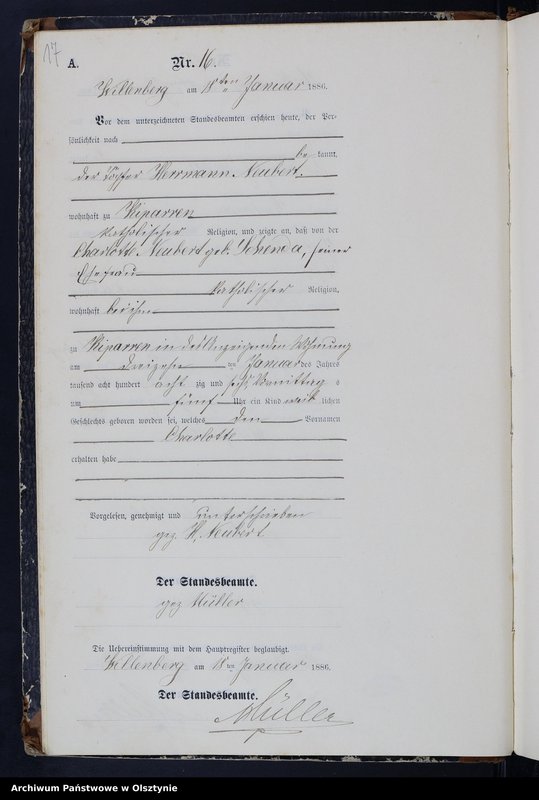 17
A. Nr. 16.
Willenberg am 18ten Januar 1886.
Vor dem unterzeichneten Standesbeamten erschien heute, der Per-
sönlichkeit nach
be kannt,
der Töpfer Herrmann Neubert,
wohnhaft zu Kiparren
katholischer Religion, und zeigte an, daß von der
Charlotte Neubert geb. , seiner
Ehefrau
katholischer Religion,
wohnhaft bei ihm
zu Kiparren in des Anzeigenden Wohnung
am dreizehn ten Januar des Jahres
tausend acht hundert acht zig und sechs Vormittag s
um fünf Uhr ein Kind weib lichen
Geschlechts geboren worden sei, welches den Vornamen
Charlotte
erhalten habe
Vorgelesen, genehmigt und unterschrieben
gez. H. Neubert
Der Standesbeamte.
gez Müller
Die Uebereinstimmung mit dem Hauptregister beglaubigt.
Willenberg am 18ten Januar 1886.
Der Standesbeamte.
Müller
Archiwum Państwowe w Olsztynie